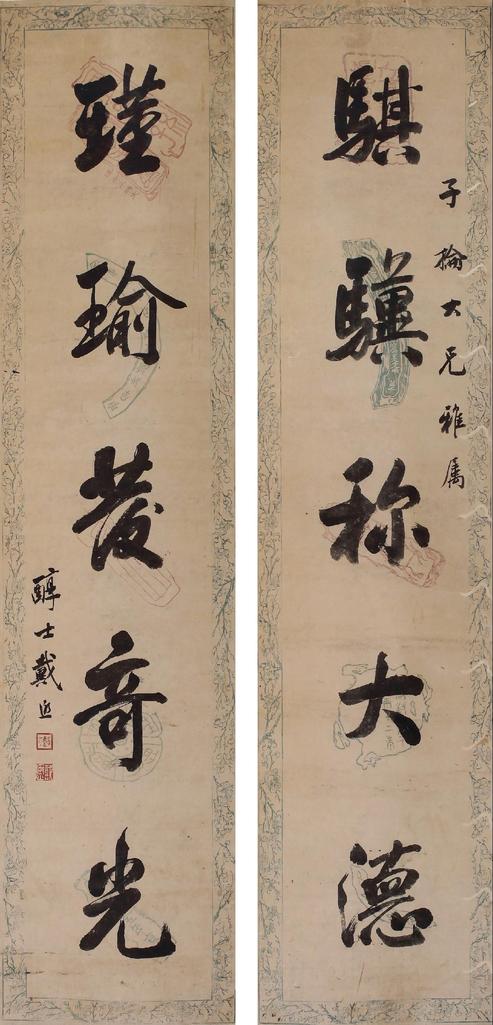 子掄大兄雅属
騏驥称大德
瑾瑜發奇光
醇士戴熙